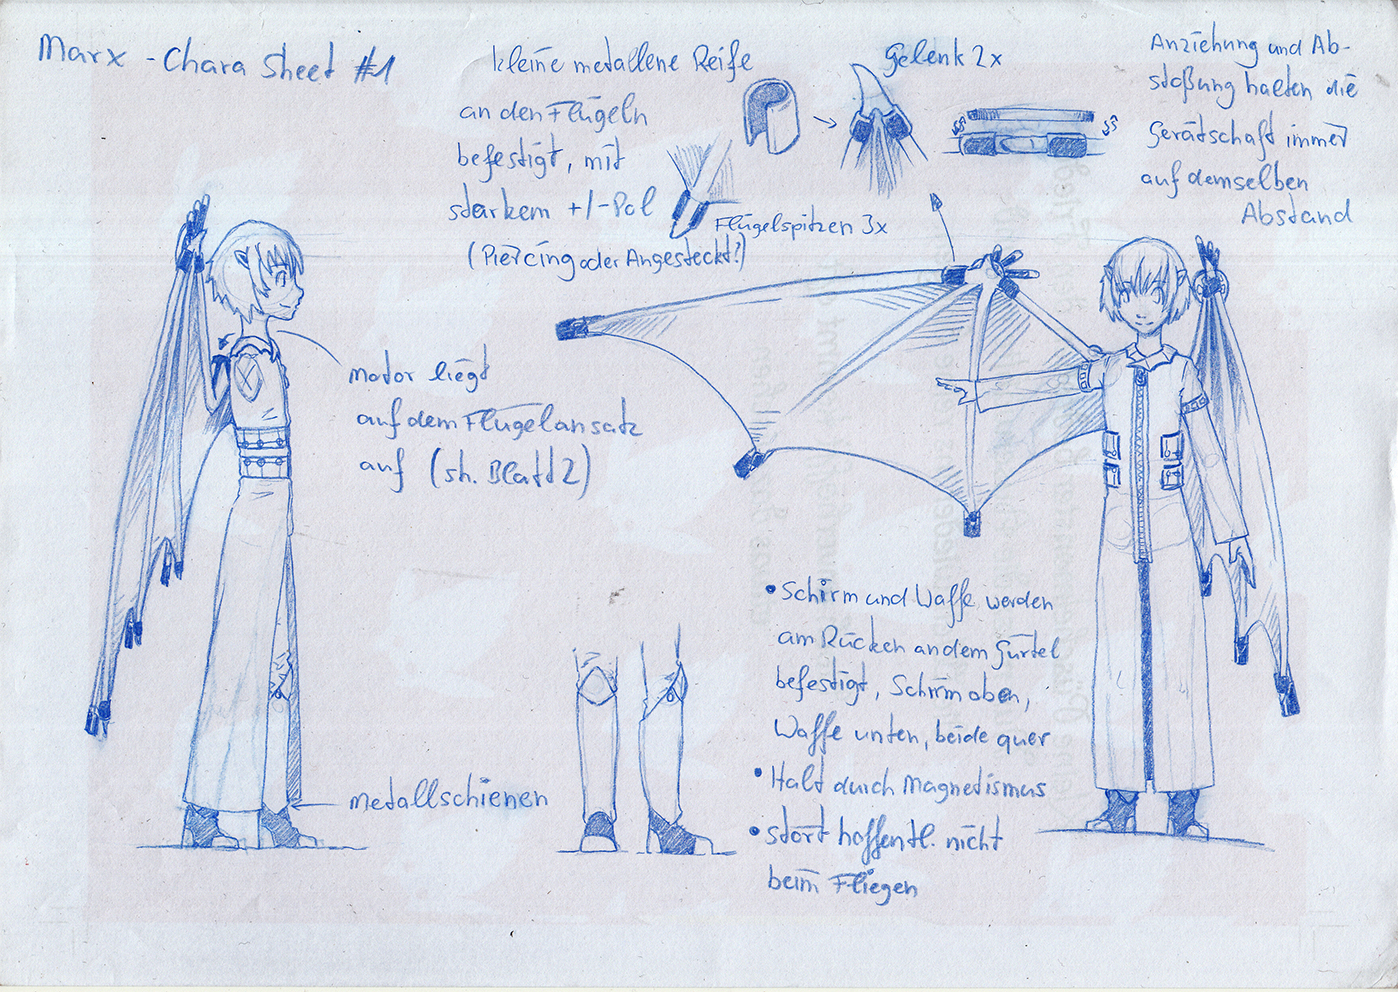 Marx - Chara Sheet #1
kleine metallene Reife
an den Flügeln
befestigt, mit
starkem +/-Pol
(Piercing oder Angesteckt?)
Gelenk 2x
Flügelspitzen 3x
Anziehung und Ab-
stoßung halten die
Gerätschaft immer
auf demselben
Abstand
Motor liegt
auf dem Flügelansatz
auf (sh. Blatt 2)
Metallschienen
• Schirm und Waffe werden
am Rücken an dem Gürtel
befestigt, Schirm oben,
Waffe unten, beide quer
• Halt durch Magnetismus
• stört hoffentl. nicht
beim Fliegen